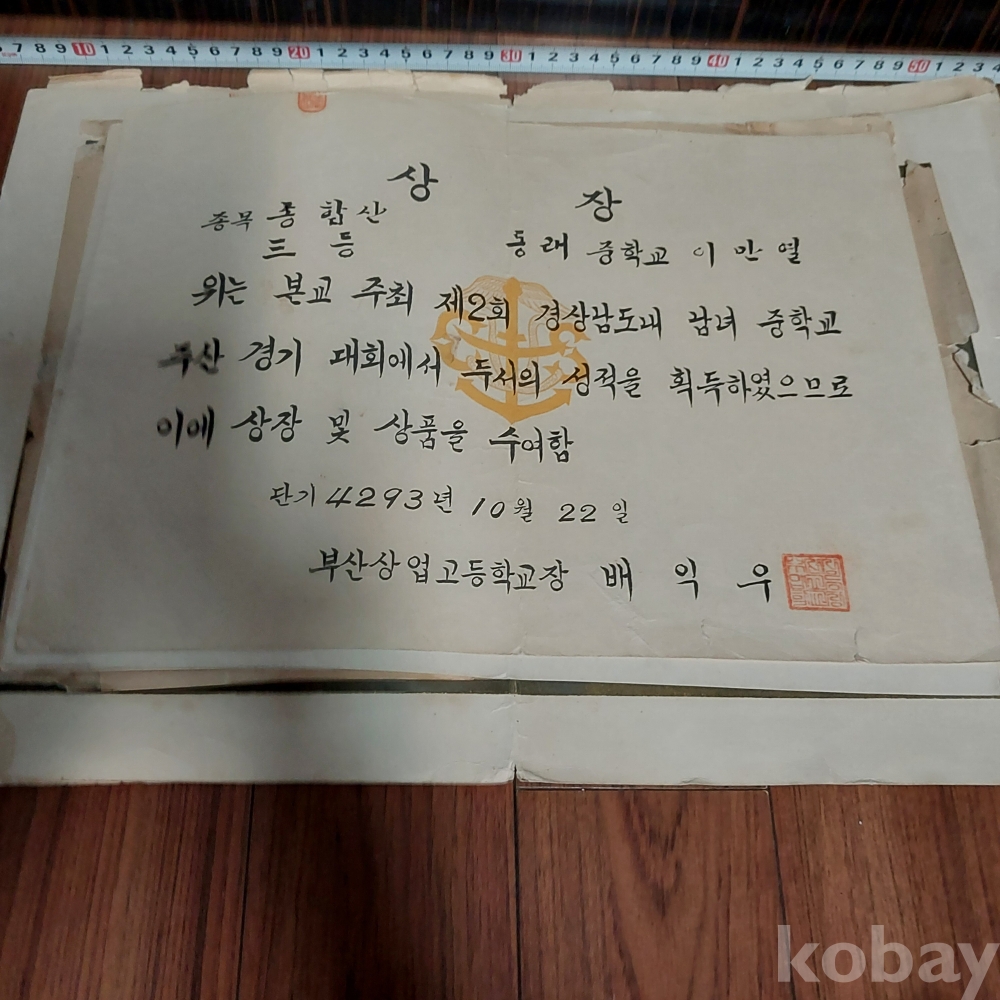 7 8 9 10 1 2 3 4 5 6 7 8 9 20 1 2 3 4 5 6 7 8 9 30 1 2 3 4 5 6 7 8 9 40 1 2 3 4 5 6 7 8 9 50 1 2 3 4
상 장
종목 종합산
三등 동래 중학교 이만열
위는 본교 주최 제2회 경상남도내 남녀 중학교
주산 경기 대회에서 두서의 성적을 획득하였으므로
이에 상장 및 상품을 수여함
단기 4293년 10월 22일
부산상업고등학교장 배익우
kobay